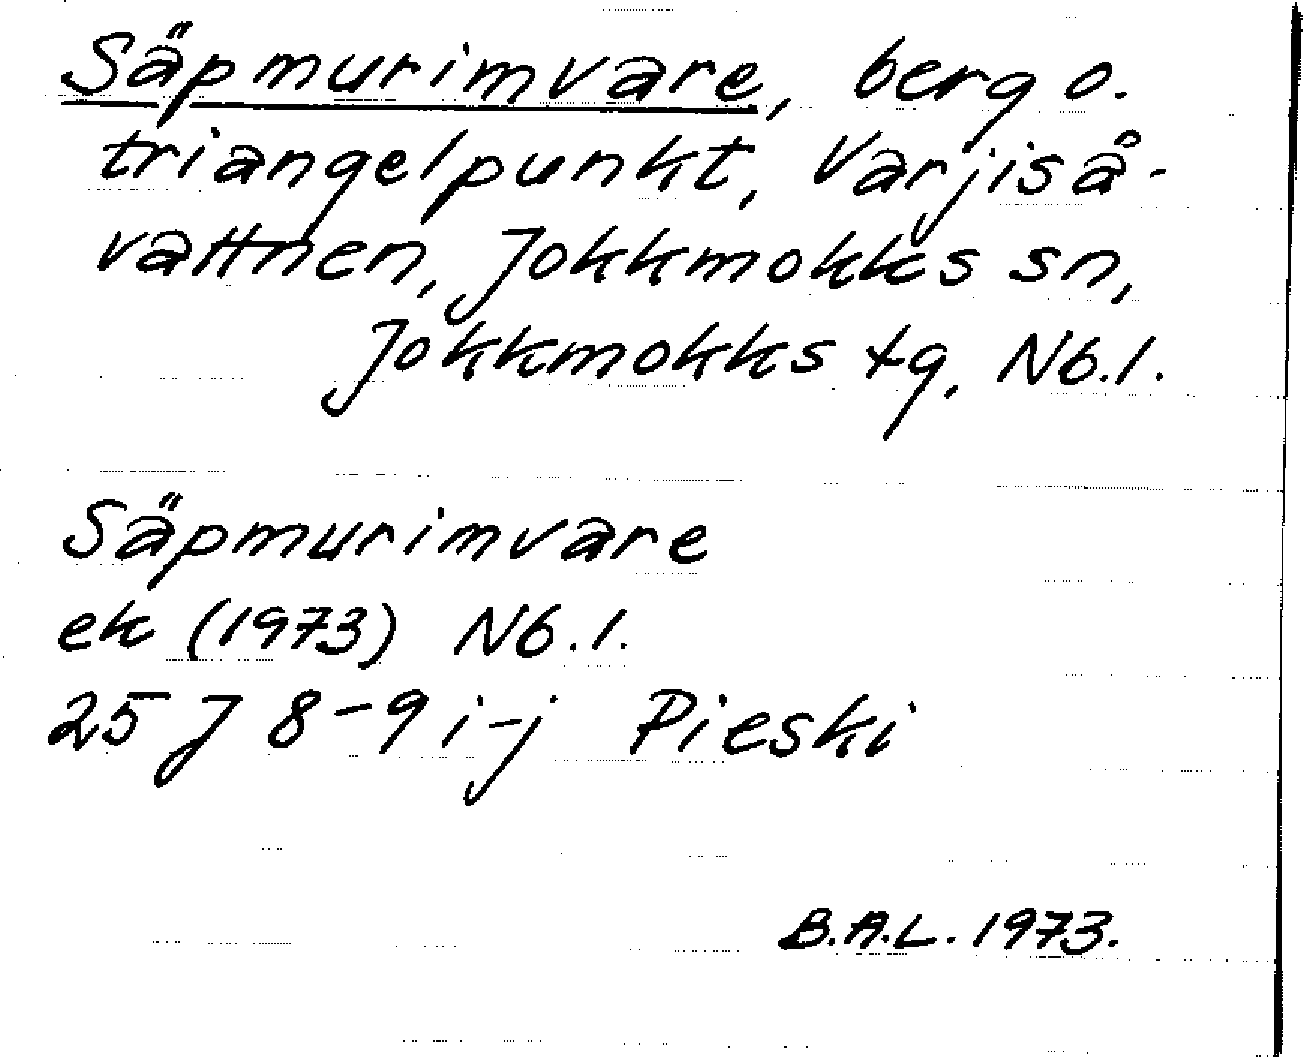 Säpmurimvare, berg o.
triangelpunkt, Varjiså-
vattnen, Jokkmokks sn,
Jokkmokks tg, Nb.l.
Säpmurimvare
ek (1973) Nb.l.
25 J 8-9 i-j Pieski
B.A.L. 1973.